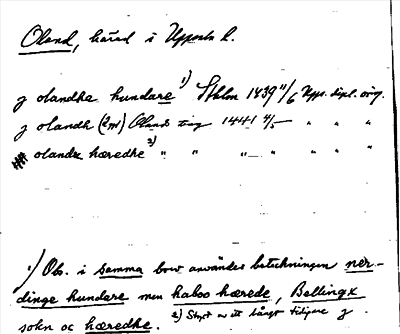 Oland, härad i Uppsala l.
j olandha hundare 1) Sthlm 1439 11/6 Upps. dipl. orig.
j olandh (2 ggr) Olands ting 1441 4/5 " " "
olandz hæredhe 2) " " " " " "
1) Obs. i samma brev användes beteckningen ner-
dinge hundare men haboo hærede, Bellingx
sokn oc hæredhe. 2) Skrivet av ett långt tidigare j.